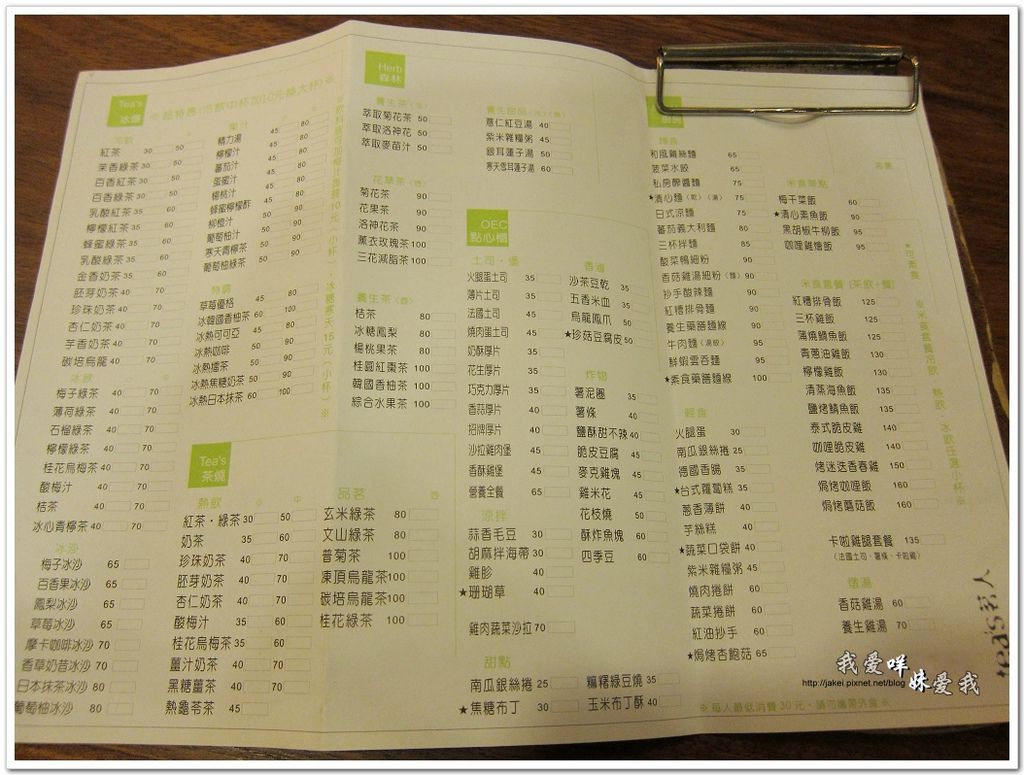 Tea's
冰爐
飲
紅茶 30 50
茉香綠茶 30 50
百香紅茶 30 50
百香綠茶 30 50
乳酸紅茶 35 60
檸檬紅茶 35 60
蜂蜜綠茶 35 60
乳酸綠茶 35 60
金香奶茶 35 60
胚芽奶茶 40 70
珍珠奶茶 40 70
杏仁奶茶 40 70
芋香奶茶 40 70
碳培烏龍 40 70
冰飲
梅子綠茶 40 70
薄荷綠茶 40 70
石榴綠茶 40 70
檸檬綠茶 40 70
桂花烏梅茶 40 70
酸梅汁 40 70
桔茶 40 70
冰心青檸茶 40 70
冰沙
梅子冰沙 65
百香果冰沙 65
鳳梨冰沙 65
草莓冰沙 65
摩卡咖啡冰沙 70
香草奶昔冰沙 70
日本抹茶冰沙 80
葡萄柚冰沙 80
果汁
精力湯 45 80
檸檬汁 45 80
蕃茄汁 45 80
蛋蜜汁 45 80
楊桃汁 45 80
蜂蜜檸檬酢 45 80
柳橙汁 50 90
葡萄柚汁 50 90
寒天青檸茶 50 90
葡萄柚綠茶 50 90
特調
草莓優格 45 80
冰韓國香柚茶 60 100
冰熱可可亞 45 80
冰熱咖啡 50 90
冰熱擂茶 50 90
冰熱焦糖奶茶 50 90
冰熱日本抹茶 60 100
Tea's
茶燒
熱飲 小 中
紅茶・綠茶 30 50
奶茶 35 60
珍珠奶茶 40 70
胚芽奶茶 40 70
杏仁奶茶 40 70
酸梅汁 35 60
桂花烏梅茶 35 60
薑汁奶茶 40 70
黑糖薑茶 40 70
熱龜苓茶 45
品茗 壺
玄米綠茶 80
文山綠茶 80
普菊茶 100
凍頂烏龍茶 100
碳培烏龍茶 100
桂花綠茶 100
Herb
森林
養生茶(冷)
萃取菊花茶 50
萃取洛神花 50
萃取麥苗汁 50
花草茶(壺)
菊花茶 90
花果茶 90
洛神花茶 90
薰衣玫瑰茶 100
三花減脂茶 100
養生茶(壺)
桔茶 80
冰糖鳳梨 80
楊桃果茶 80
桂圓紅棗茶 100
韓國香柚茶 100
綜合水果茶 100
薏仁紅豆湯 40
紫米雜糧粥 45
銀耳蓮子湯 50
寒天雪耳蓮子湯 60
OEC
點心櫃
土司・堡
火腿蛋土司 35
薄片土司 35
法國土司 35
燒肉蛋土司 35
奶酥厚片 35
花生厚片 35
巧克力厚片 35
香蒜厚片 40
招牌厚片 40
沙拉雞肉堡 45
香酥雞堡 45
營養全餐 65
涼拌
蒜香毛豆 30
胡麻拌海帶 30
雞胗 40
★珊瑚草 40
雞肉蔬菜沙拉 70
甜點
南瓜銀絲捲 25
★焦糖布丁 30
糯糬綠豆燒 35
玉米布丁酥 40
香滷
沙茶豆乾 35
五香米血 40
烏龍鳳爪 50
★珍菇豆腐皮 50
炸物
薯泥團 35
薯條 40
鹽酥甜不辣 40
脆皮豆腐 45
麥克雞塊 45
雞米花 45
花枝燒 50
酥炸魚塊 60
四季豆 60
麵食
和風雞絲麵 65
菠菜水餃 70
私房醡醬麵 75
★清心麵(乾)(湯) 75
日式涼麵 75
蕃茄義大利麵 80
三杯拌麵 85
酸菜鴨細粉 90
香菇雞湯細粉(麵) 90
抄手酸辣麵 90
紅糟排骨麵 90
養生藥膳麵線 90
牛肉麵(湯餃) 90
鮮蝦雲吞麵 90
★素食藥膳麵線 100
輕食
火腿蛋 30
南瓜銀絲捲 30
德國香腸 35
★台式蘿蔔糕 35
蔥香薄餅 40
芋絲糕 40
★蔬菜口袋餅 40
紫米雜糧粥 45
燒肉捲餅 60
蔬菜捲餅 60
紅油抄手 60
★焗烤杏鮑菇 65
米食單點
梅干菜飯 60
★清心素魚飯 90
黑胡椒牛柳飯 95
咖哩雞燴飯 95
米食套餐(茶飲+麵)
紅糟排骨飯 125
三杯雞飯 125
蒲燒鯛魚飯 125
青蔥油雞飯 130
檸檬雞飯 130
清蒸海魚飯 135
鹽烤鯖魚飯 135
泰式脆皮雞 140
咖哩脆皮雞 140
烤迷迭香春雞 150
焗烤咖哩飯 160
焗烤蘑菇飯 160
卡啦雞腿套餐 135
(法國土司、薯條、卡啦雞)
燉湯
香菇雞湯 60
養生雞湯 70
★可素食
※每人最低消費30元，請勿攜帶外食※
tea's茗人
我愛咩
http://jakei.pixnet.net/blog
妹愛我